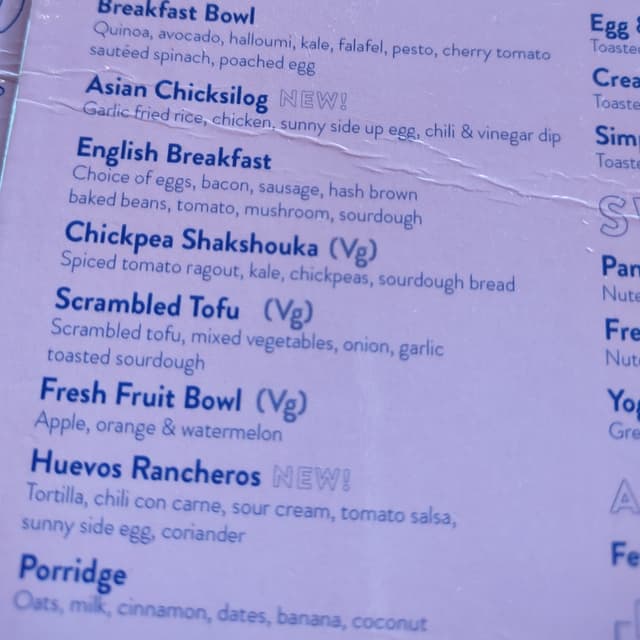 Breakfast Bowl
Quinoa, avocado, halloumi, kale, falafel, pesto, cherry tomato
sautéed spinach, poached egg
Asian Chicksilog NEW!
Garlic fried rice, chicken, sunny side up egg, chili & vinegar dip
English Breakfast
Choice of eggs, bacon, sausage, hash brown
baked beans, tomato, mushroom, sourdough
Chickpea Shakshouka (Vg)
Spiced tomato ragout, kale, chickpeas, sourdough bread
Scrambled Tofu (Vg)
Scrambled tofu, mixed vegetables, onion, garlic
toasted sourdough
Fresh Fruit Bowl (Vg)
Apple, orange & watermelon
Huevos Rancheros NEW!
Tortilla, chili con carne, sour cream, tomato salsa,
sunny side egg, coriander
Porridge
Oats, milk, cinnamon, dates, banana, coconut
Egg